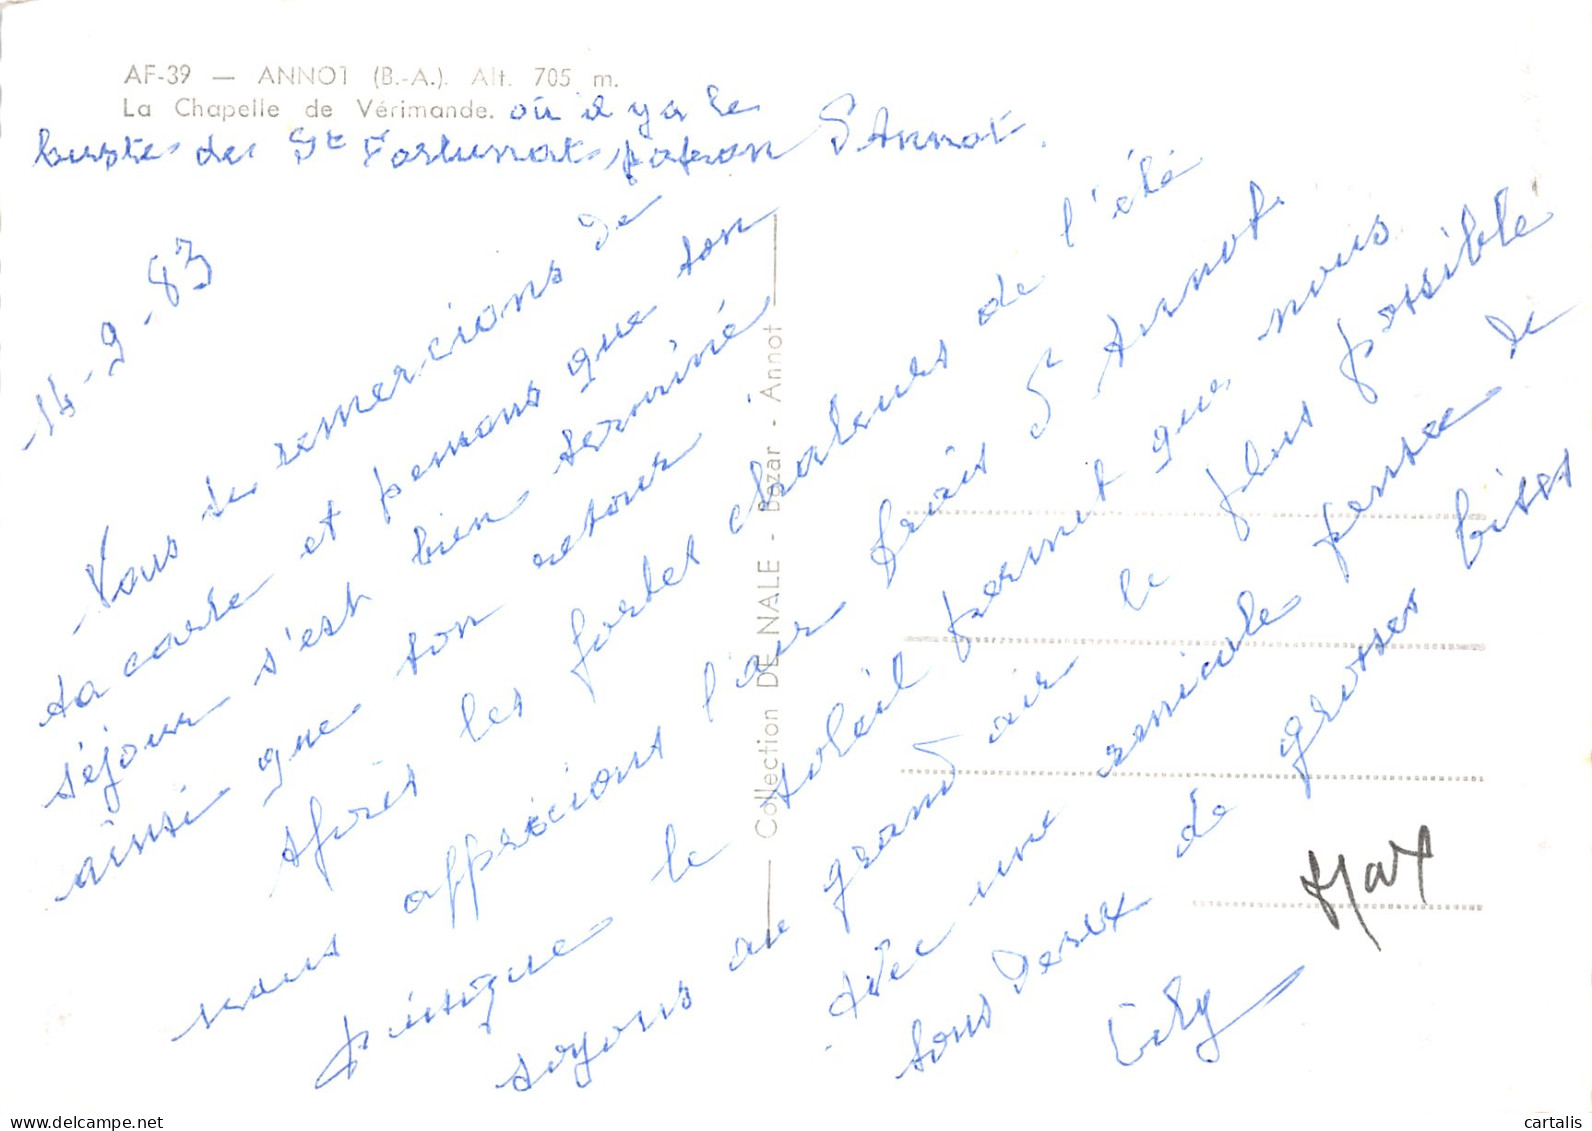 AF-39 — ANNOT (B.-A.). Alt. 705 m.
La Chapelle de Vérimande. où il y a le
buste de St Fortunat patron d'Annot.
14-9-83
Vous te remercions de
ta carte et pensons que ton
séjour s'est bien terminé
ainsi que ton retour
Après les fortes chaleurs de l'été
nous apprécions l'air frais d'Annot.
puisque le soleil permet que nous
soyons au grand air le plus possible
Avec une amicale pensée de
tous deux de grosses bises
Lily
Max
Collection DE NALE - Bazar - Annot
delcampe.net
cartalis